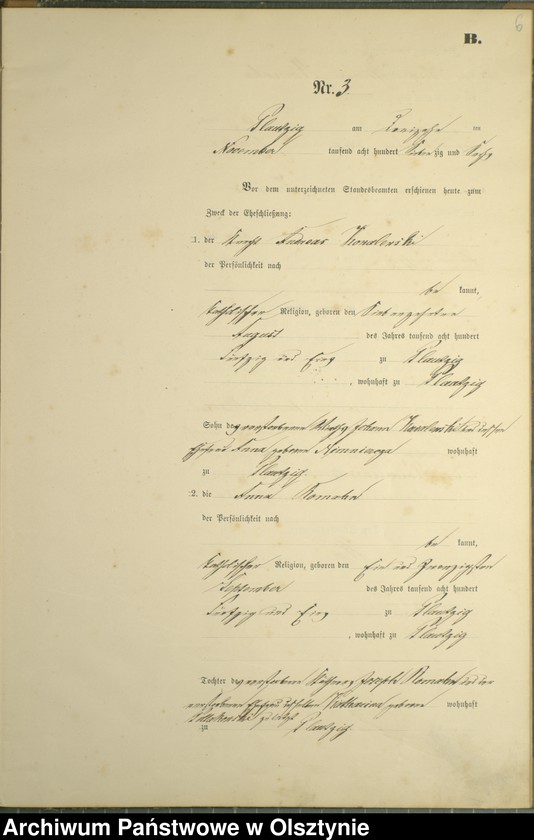 B.
6
Nr. 3
Plautzig am ten
November tausend acht hundert Sieben zig und Sechs
Vor dem unterzeichneten Standesbeamten erschienen heute zum
Zweck der Eheschließung:
1. der Knecht Andreas Kowalewski
der Persönlichkeit nach
be kannt,
katholischer Religion, geboren den Siebenzehnten
August des Jahres tausend acht hundert
Fünfzig und Eins zu Plautzig
, wohnhaft zu Plautzig
Sohn des verstorbenen Johann Kowalewski und dessen
Ehefrau Anna geborene wohnhaft
zu Plautzig.
2. die Anna Romalea
der Persönlichkeit nach
be kannt,
katholischer Religion, geboren den Ein und Zwanzigsten
September des Jahres tausend acht hundert
Fünfzig und Eins zu Plautzig
, wohnhaft zu Plautzig
Tochter des verstorbenen Joseph und der
verstorbenen Ehefrau desselben Katharina geborene wohnhaft
zu Plautzig
Archiwum Państwowe w Olsztynie